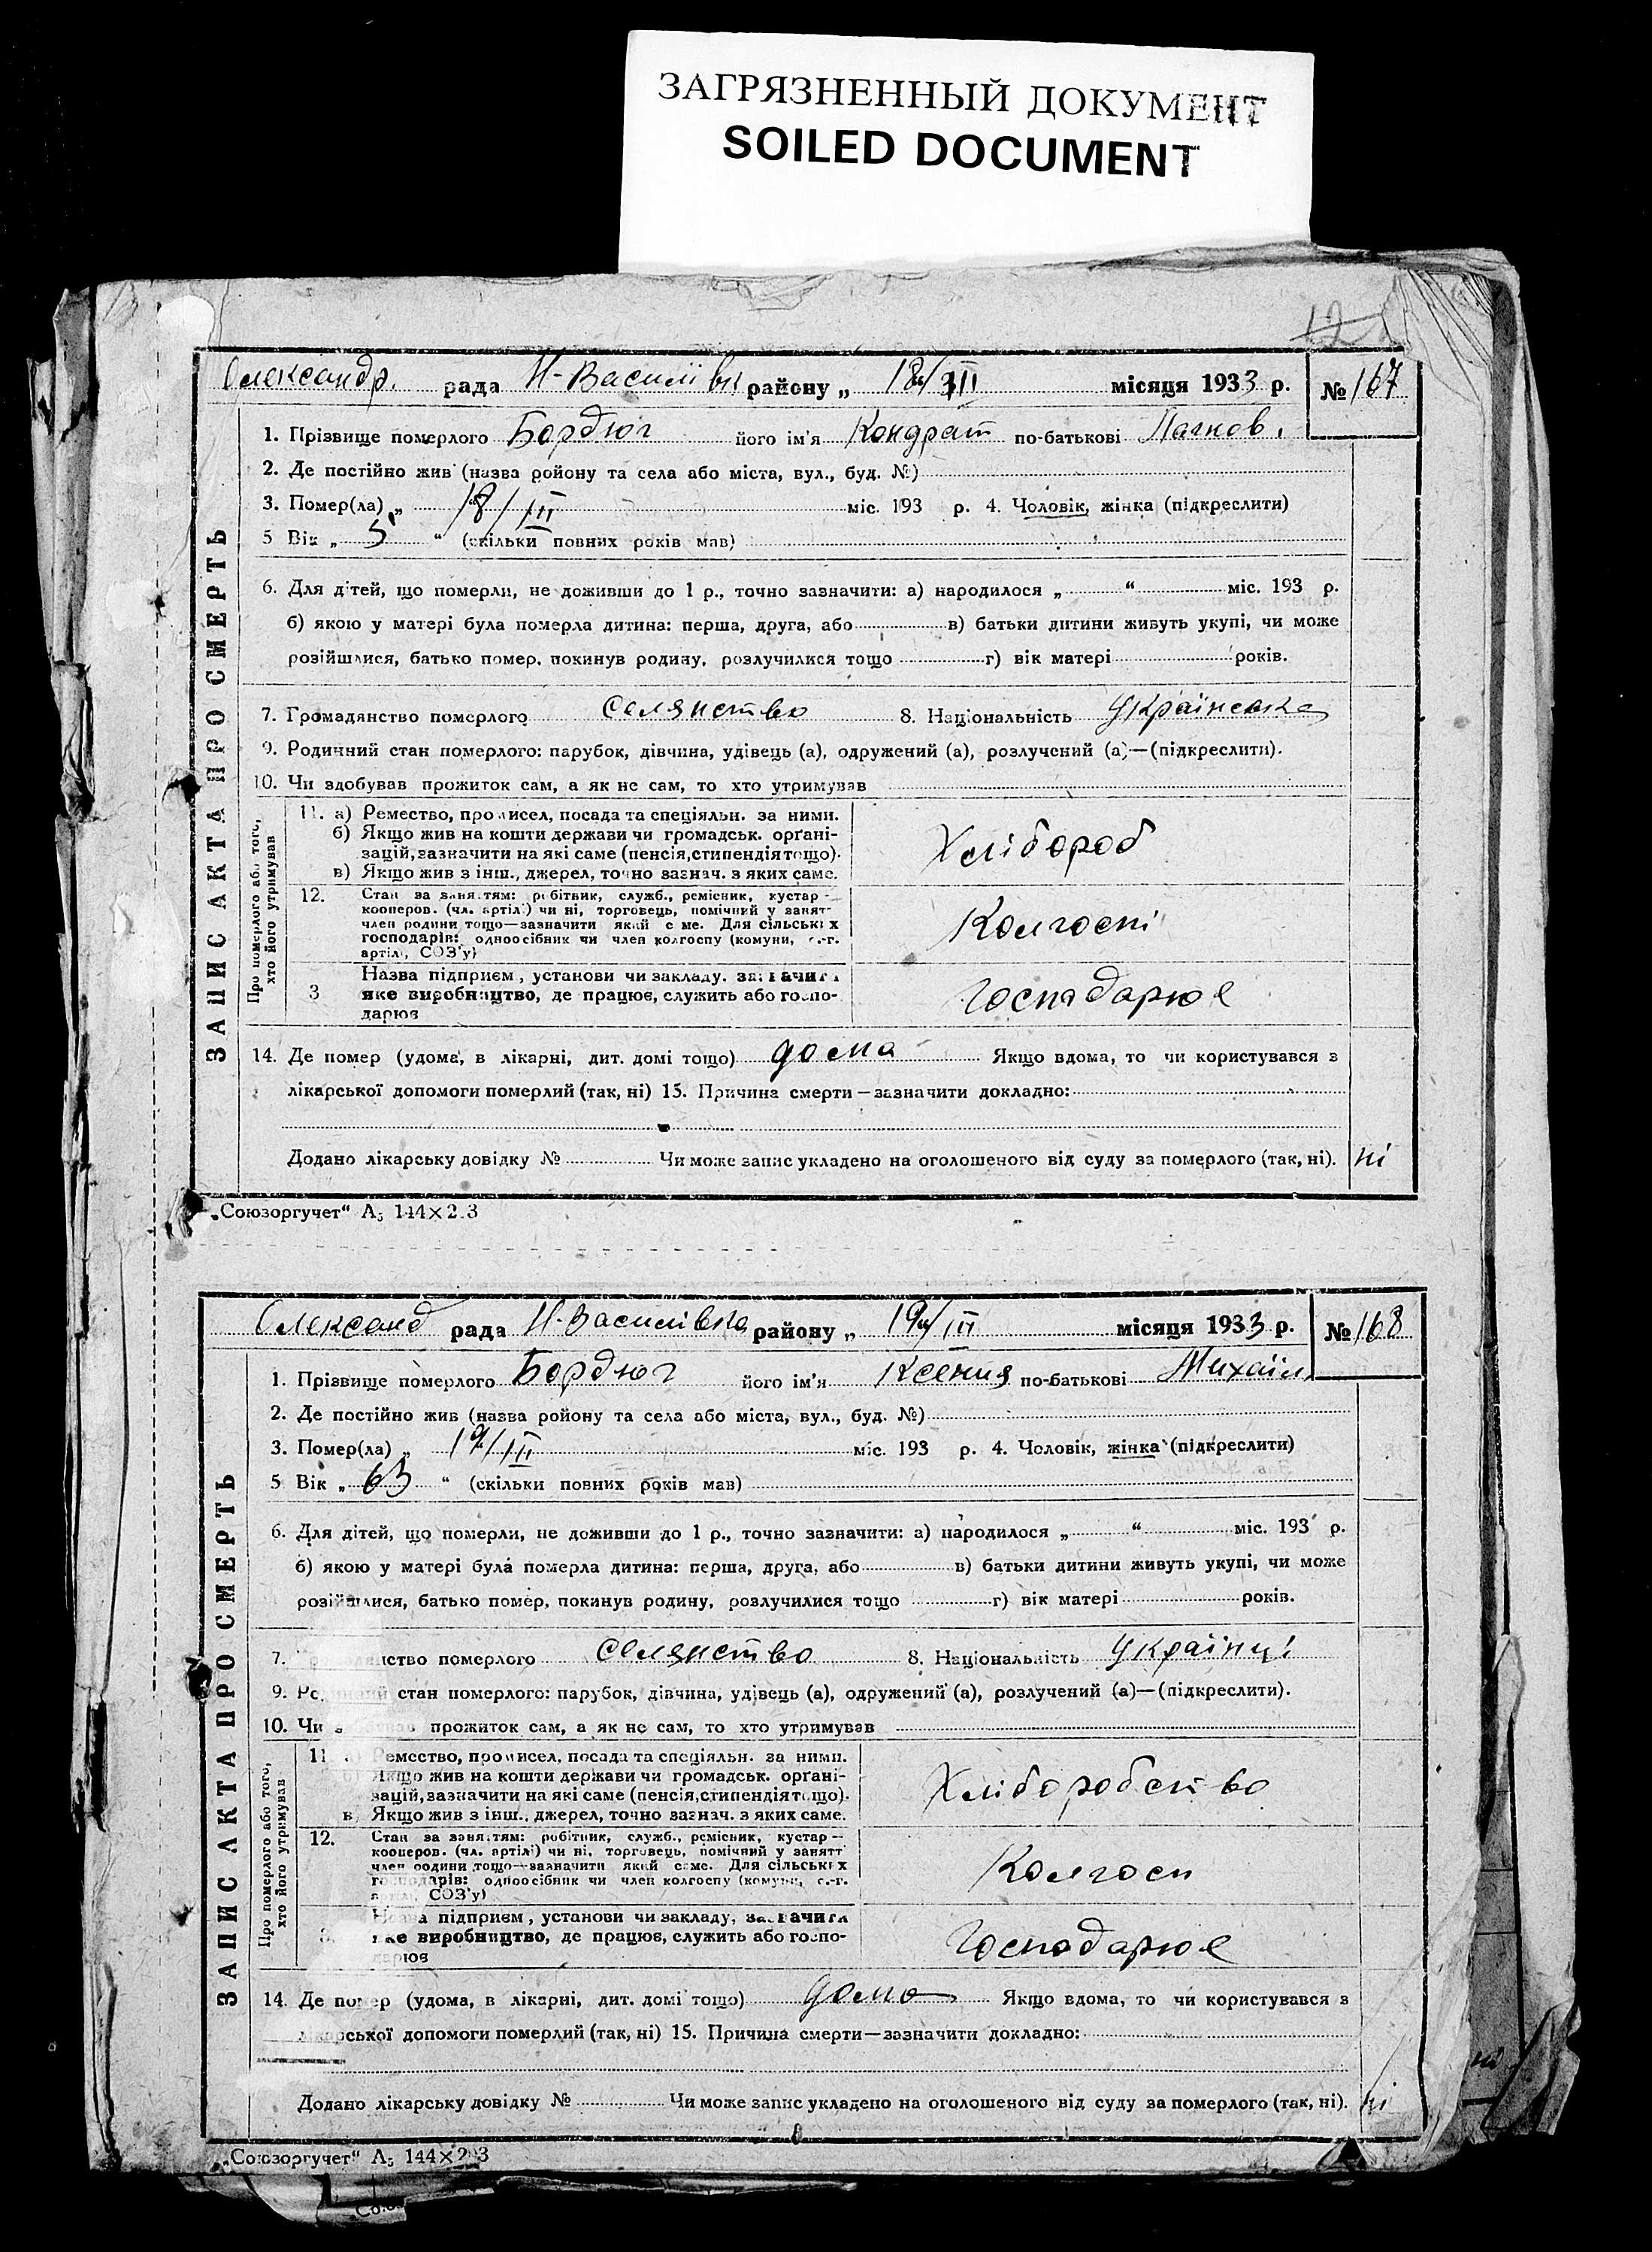 ЗАГРЯЗНЕННЫЙ ДОКУМЕНТ
SOILED DOCUMENT
121
Олександр. рада Н-Василівк району „ 18/III місяця 1933 р. № 167
1. Прізвище померлого Бордюг його ім'я Кондрат по-батькові
2. Де постійно жив (назва ройону та села або міста, вул., буд. №)
3. Помер(ла) „ 18/III міс. 193 р. 4. Чоловік, жінка (підкреслити)
5 Вік „ 5 “ (скільки повних років мав)
6. Для дітей, що померли, не доживши до 1 р., точно зазначити: а) народилося „ “ міс. 193 р.
б) якою у матері була померла дитина: перша, друга, або в) батьки дитини живуть укупі, чи може
розійшлися, батько помер, покинув родину, розлучилися тощо г) вік матері років.
7. Громадянство померлого селянство 8. Національність Українська
9. Родинний стан померлого: парубок, дівчина, удівець (а), одружений (а), розлучений (а)—(підкреслити).
10. Чи здобував прожиток сам, а як не сам, то хто утримував
ЗАПИС АКТА ПРО СМЕРТЬ
Про померлого або того, хто його утримував
11. а) Ремество, промисел, посада та спеціяльн. за ними.
б) Якщо жив на кошти держави чи громадськ. орґані-
зацій, зазначити на які саме (пенсія, стипендія тощо).
в) Якщо жив з інш., джерел, точно зазнач. з яких саме.
Хлібороб
12. Стан за заняттям: робітник, служб., ремісник, кустар—
кооперов. (чл. артіл.) чи ні, торговець, помічний у занятт
член родини тощо—зазначити який саме. Для сільських
господарів: одноосібник чи член колгоспу (комуни, с.-г.
артілі, СОЗ'у)
Колгоспі
3 Назва підприєм, установи чи закладу, зазначити
яке виробництво, де працює, служить або госпо-
дарює
Господарює
14. Де помер (удома, в лікарні, дит. домі тощо) дома Якщо вдома, то чи користувався з
лікарської допомоги померлий (так, ні) 15. Причина смерти—зазначити докладно:
Додано лікарську довідку № Чи може запис укладено на оголошеного від суду за померлого (так, ні). ні
„Союзоргучет“ А5 144×203
Олександ рада Н-Василівка району „ 19/III місяця 1933 р. № 168
1. Прізвище померлого Бордюг його ім'я Ксения по-батькові Михайл
2. Де постійно жив (назва ройону та села або міста, вул., буд. №)
3. Помер(ла) „ 19/III міс. 193 р. 4. Чоловік, жінка (підкреслити)
5 Вік „ 63 “ (скільки повних років мав)
6. Для дітей, що померли, не доживши до 1 р., точно зазначити: а) народилося „ “ міс. 193 р.
б) якою у матері була померла дитина: перша, друга, або в) батьки дитини живуть укупі, чи може
розійшлися, батько помер, покинув родину, розлучилися тощо г) вік матері років.
7. Громадянство померлого селянство 8. Національність Українці
9. Родинний стан померлого: парубок, дівчина, удівець (а), одружений (а), розлучений (а)—(підкреслити).
10. Чи здобував прожиток сам, а як не сам, то хто утримував
ЗАПИС АКТА ПРО СМЕРТЬ
Про померлого або того, хто його утримував
11 а) Ремество, промисел, посада та спеціяльн. за ними.
б) Якщо жив на кошти держави чи громадськ. орґані-
зацій, зазначити на які саме (пенсія, стипендія тощо).
в Якщо жив з інш., джерел, точно зазнач. з яких саме.
Хлiборобство
12. Стан за заняттям: робітник, служб., ремісник, кустар—
кооперов. (чл. артілі) чи ні, торговець, помічний у занятт
член родини тощо—зазначити який саме. Для сільських
господарів: одноосібник чи член колгоспу (комуни, с.-г.
артілі, СОЗ'у)
Колгосп
3 Назва підприєм, установи чи закладу, зазначити
яке виробництво, де працює, служить або госпо-
дарює
Господарює
14. Де помер (удома, в лікарні, дит. домі тощо) дома Якщо вдома, то чи користувався з
лікарської допомоги померлий (так, ні) 15. Причина смерти—зазначити докладно:
Додано лікарську довідку № Чи може запис укладено на оголошеного від суду за померлого (так, ні). ні
„Союзоргучет“ А5 144×203